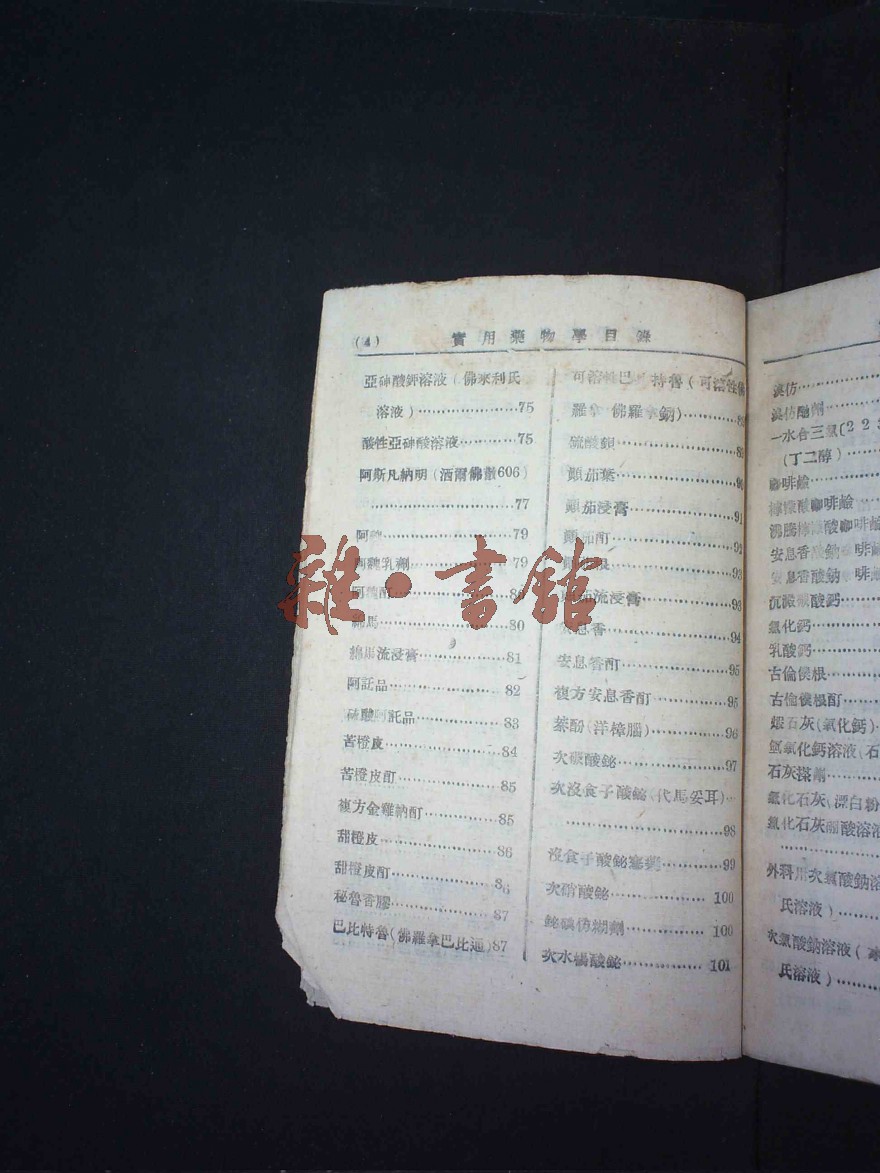 (4) 實用藥物學目錄
亞砷酸鉀溶液(佛來利氏
溶液)…………………75
酸性亞砷酸溶液…………75
阿斯凡納明(洒爾佛散606)
…………………………77
阿魏……………………79
阿魏乳劑…………………79
阿魏酊
綿馬……………………80
綿馬流浸膏………………81
阿託品……………………82
硫酸阿託品………………83
苦橙皮……………………84
苦橙皮酊…………………85
複方金雞納酊……………85
甜橙皮……………………86
甜橙皮酊…………………86
秘魯香膠…………………87
巴比特魯(佛羅拿巴比通)87
可溶性巴 特魯(可溶性佛
羅拿 佛羅拿鈉)………
硫酸鋇……………………89
顛茄葉……………………90
顛茄浸膏…………………91
顛茄酊……………………92
顛茄根……………………93
顛茄流浸膏………………93
安息香……………………94
安息香酊…………………95
複方安息香酊……………95
萘酚(洋樟腦)……………96
次碳酸鉍…………………97
次沒食子酸鉍(代馬妥耳)…
…………………………98
沒食子酸鉍塞藥…………99
次硝酸鉍…………………100
鉍碘仿糊劑………………100
次水楊酸鉍………………101
溴仿……………
溴仿醑劑………
一水合三氯〔2 2 3
(丁二醇)……
咖啡鹼…………
檸檬酸咖啡鹼…
沸騰檸檬酸咖啡鹼
安息香酸鈉咖啡鹼
沉澱碳酸鈣……
氯化鈣…………
乳酸鈣…………
古倫僕根………
古倫僕根酊……
煆石灰(氧化鈣)…
氫氧化鈣溶液(石
石灰搽劑………
氯化石灰(漂白粉
氯化石灰硼酸溶液
…………
外科用次氯酸鈉溶
氏溶液)………
次氯酸鈉溶液(
氏溶液)………
雜·書館